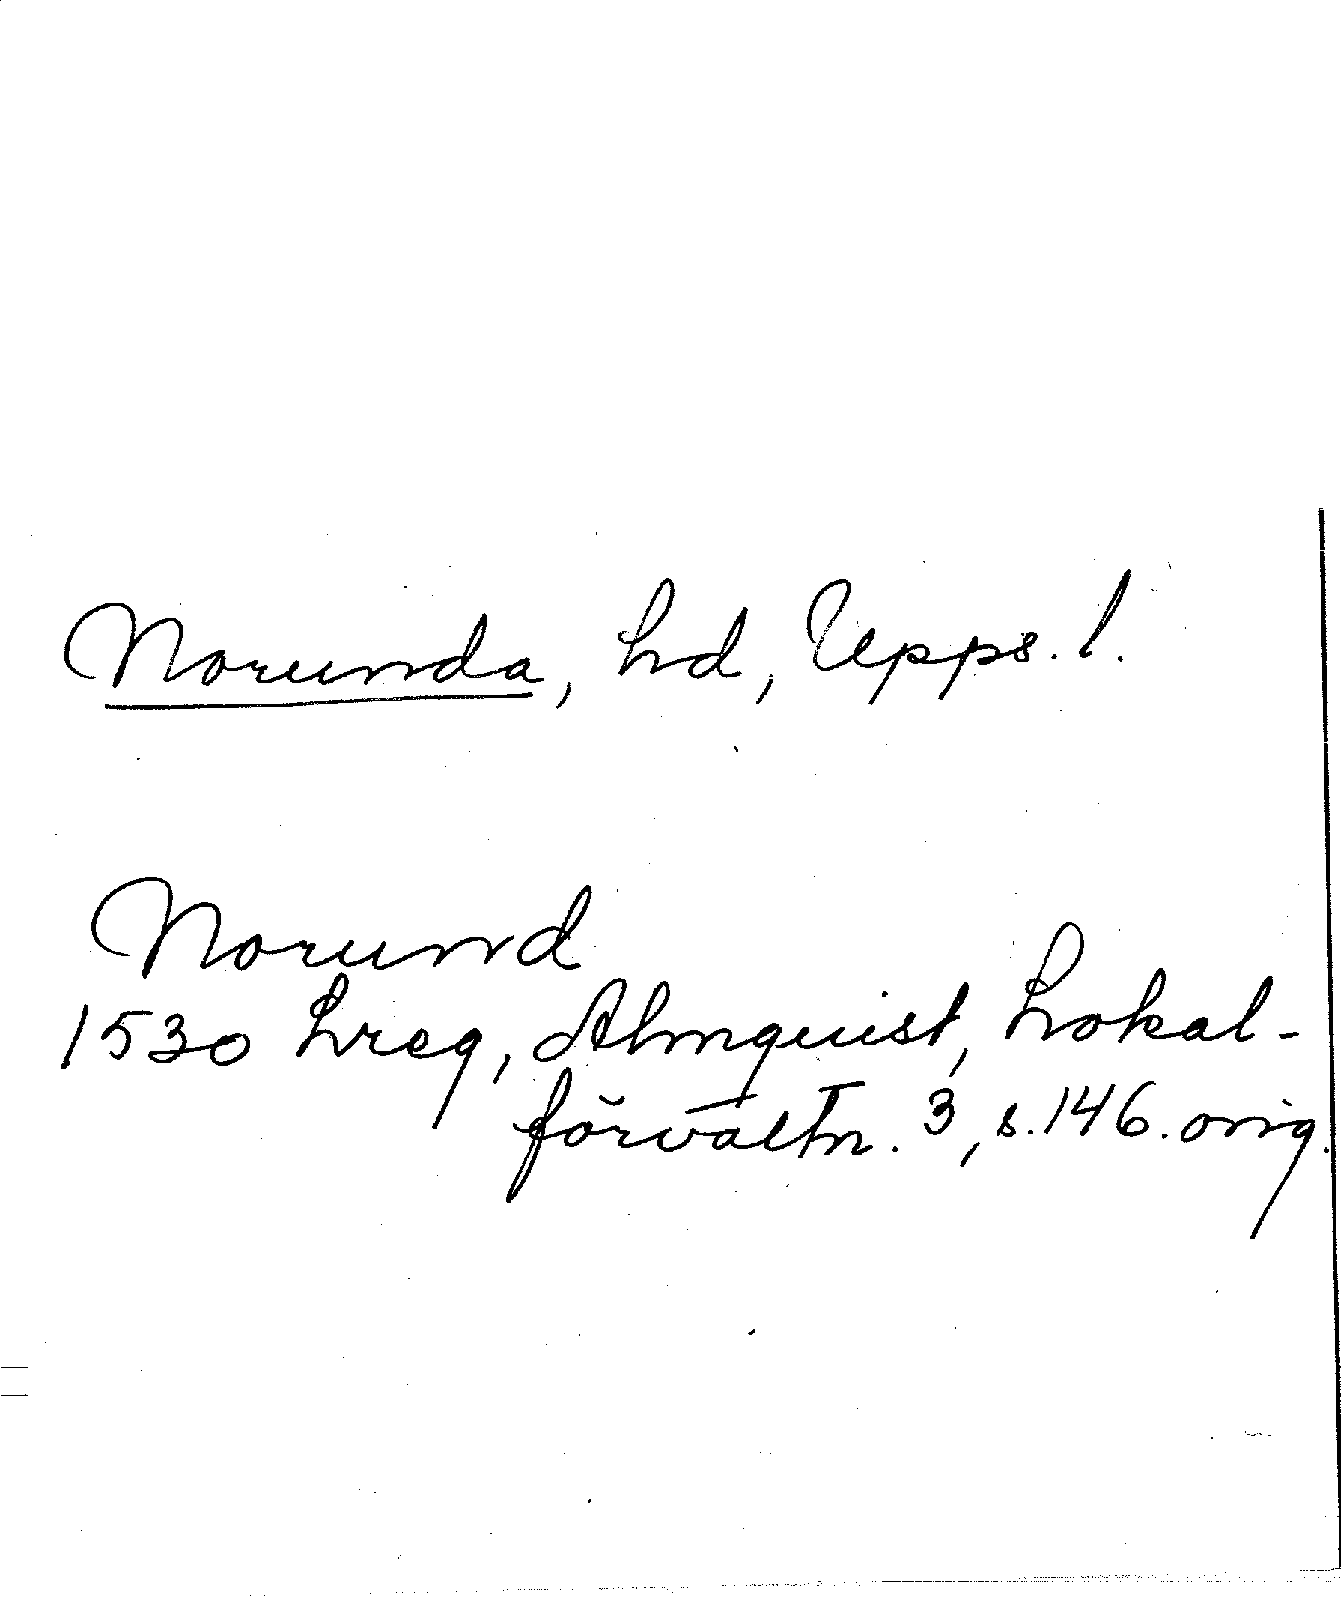 Norunda, hd, Upps. l.
Norund
1530 hreg, Almquist, Lokal-
förvaltn. 3, s. 146. orig.